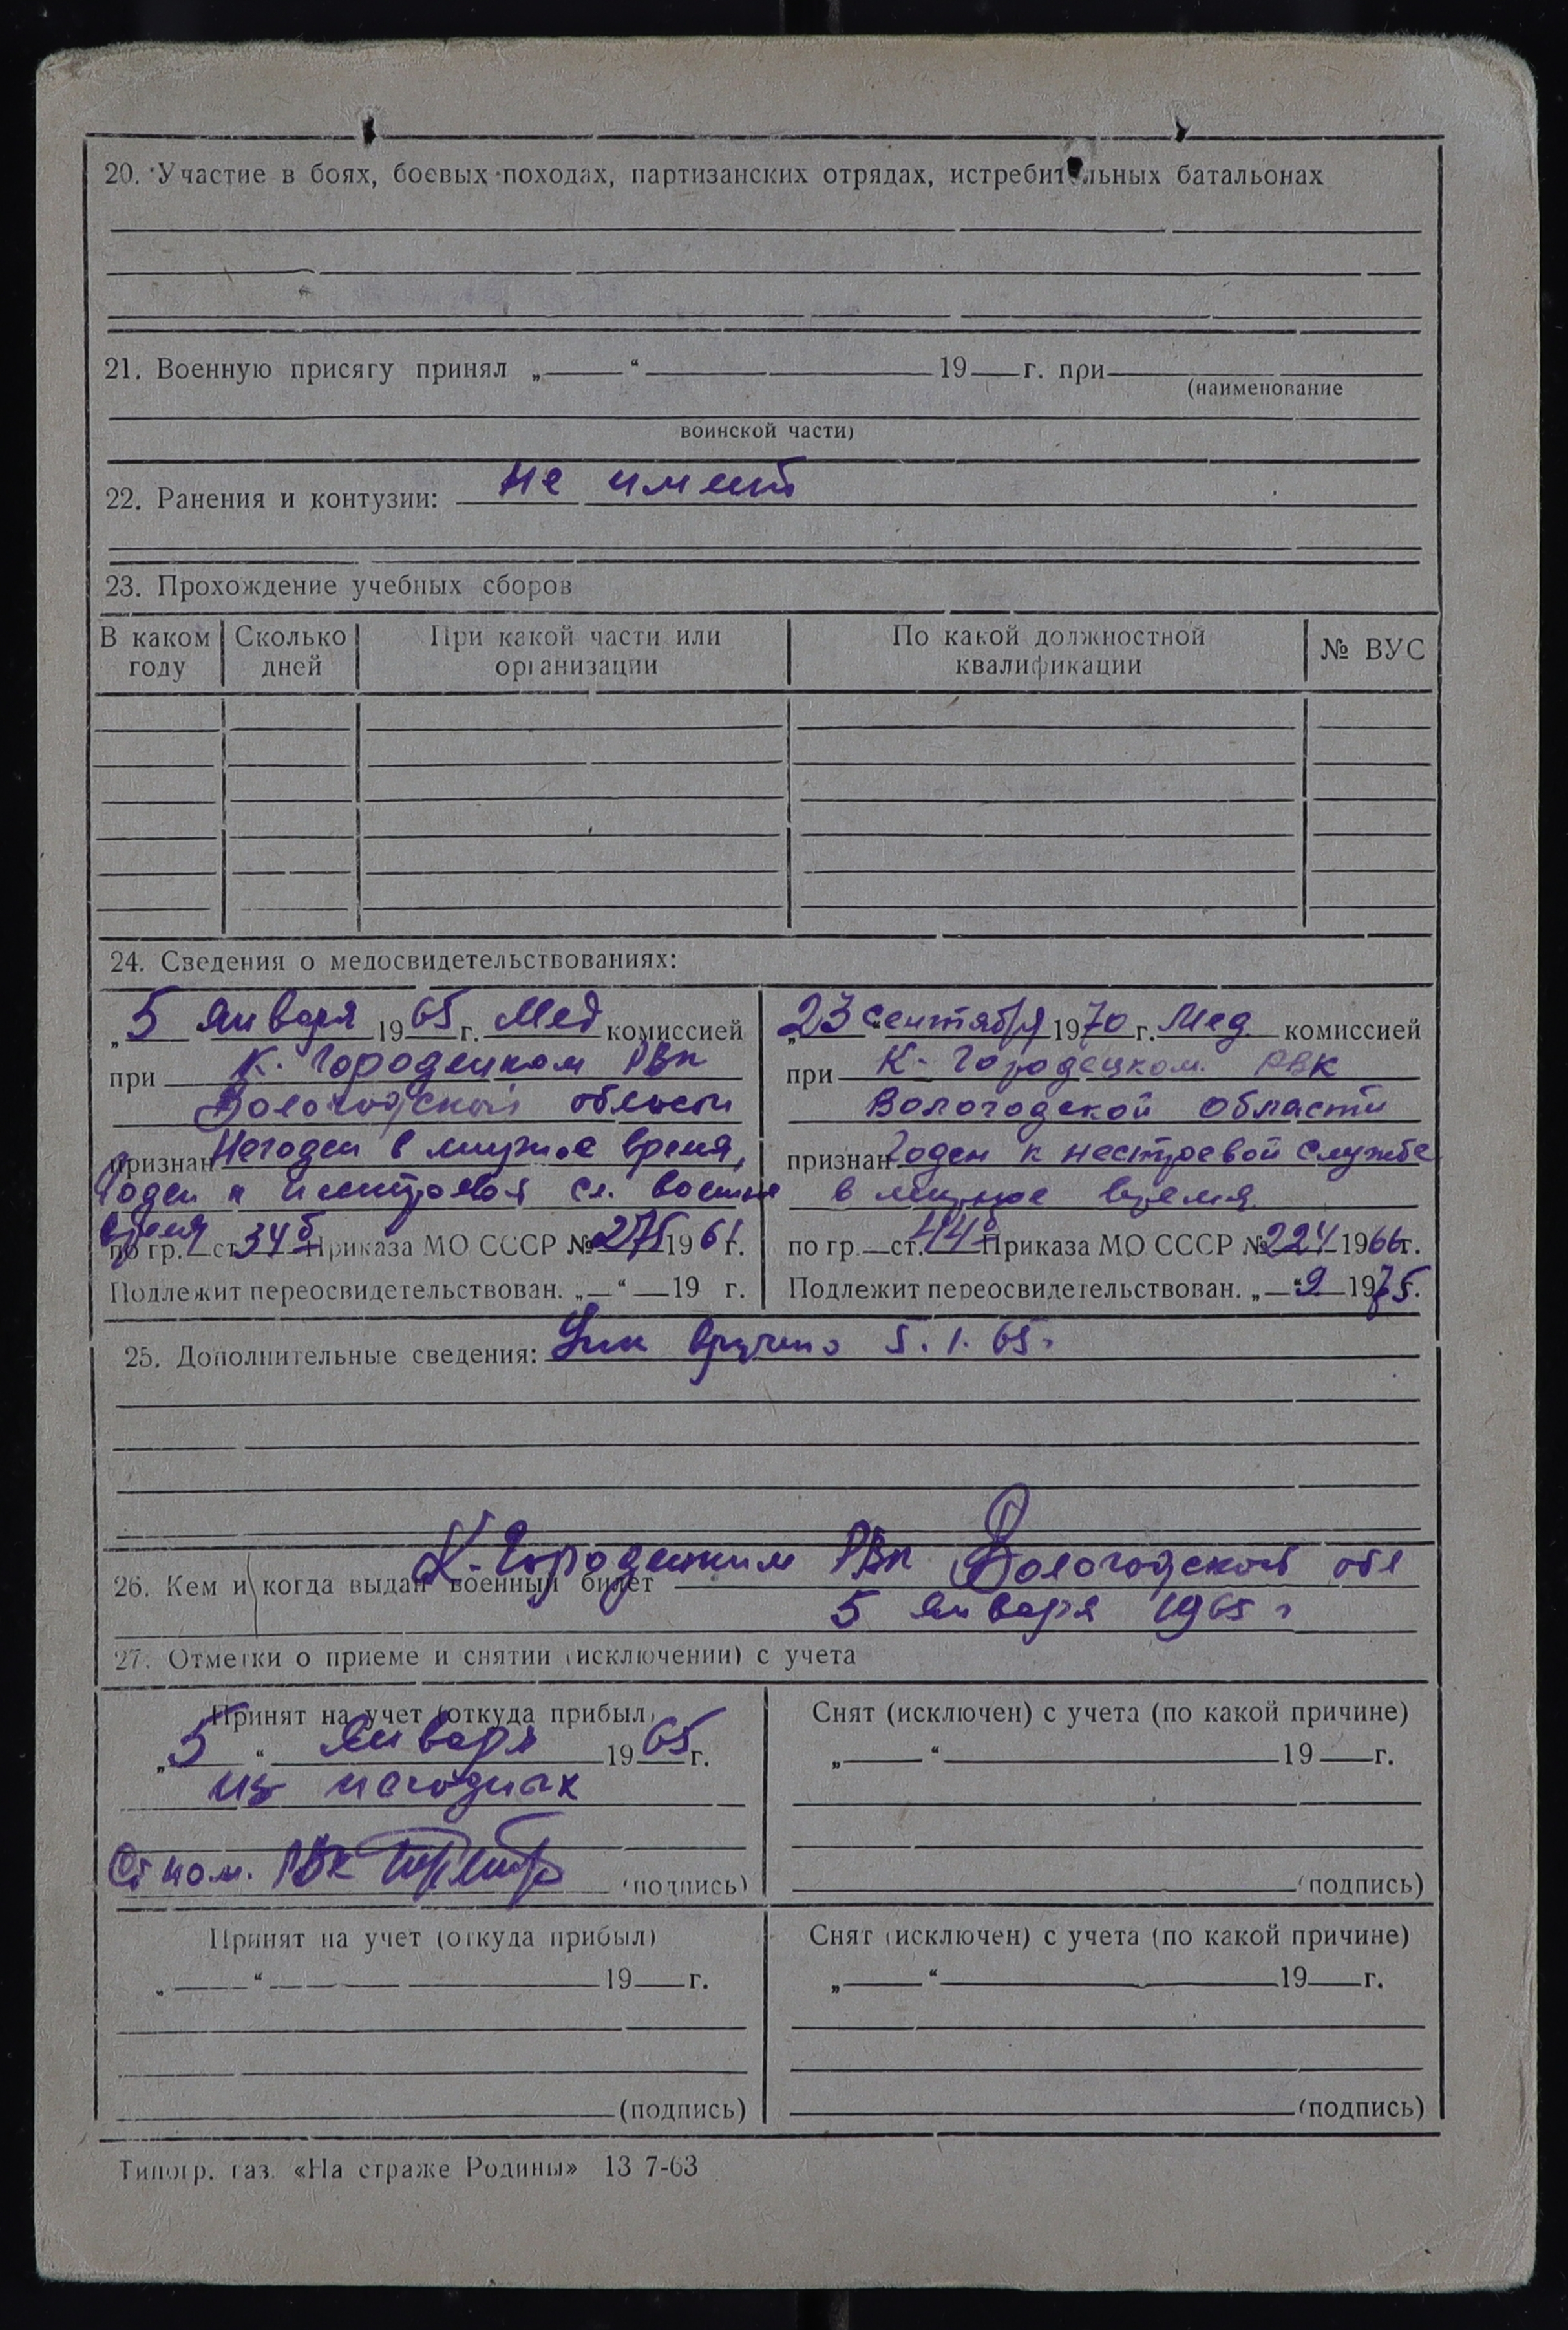 20. Участие в боях, боевых походах, партизанских отрядах, истребительных батальонах
21. Военную присягу принял „ “ 19 г. при
(наименование
воинской части)
22. Ранения и контузии: не имеет
23. Прохождение учебных сборов
В каком году | Сколько дней | При какой части или организации | По какой должностной квалификации | № ВУС
24. Сведения о медосвидетельствованиях:
„5 января 1965 г. Мед комиссией
при К. Городецком РВк
Вологодской области
признан Негоден в мирное время,
Годен к нестроевой сл. военное
время
по гр. I ст. 34б Приказа МО СССР № 275 1961 г.
Подлежит переосвидетельствован. „ “ 19 г.
„23 сентября 1970 г. Мед. комиссией
при К-Городецком РВК
Вологодской области
признан Годен к нестроевой службе
в мирное время
по гр. ст. 44 Приказа МО СССР № 224 1966 г.
Подлежит переосвидетельствован. „ “ 9 1975 г.
25. Дополнительные сведения: вручено 5.1.65г
26. Кем и когда выдан военный билет К-Городецким РВк Вологодской обл
5 января 1965 г
27. Отметки о приеме и снятии (исключении) с учета
Принят на учет (откуда прибыл)
„5“ января 1965 г.
из негодных
Ст пом. РВК
(подпись)
Снят (исключен) с учета (по какой причине)
„ “ 19 г.
(подпись)
Принят на учет (откуда прибыл)
„ “ 19 г.
(подпись)
Снят (исключен) с учета (по какой причине)
„ “ 19 г.
(подпись)
Типогр. газ. «На страже Родины» 13 7-63